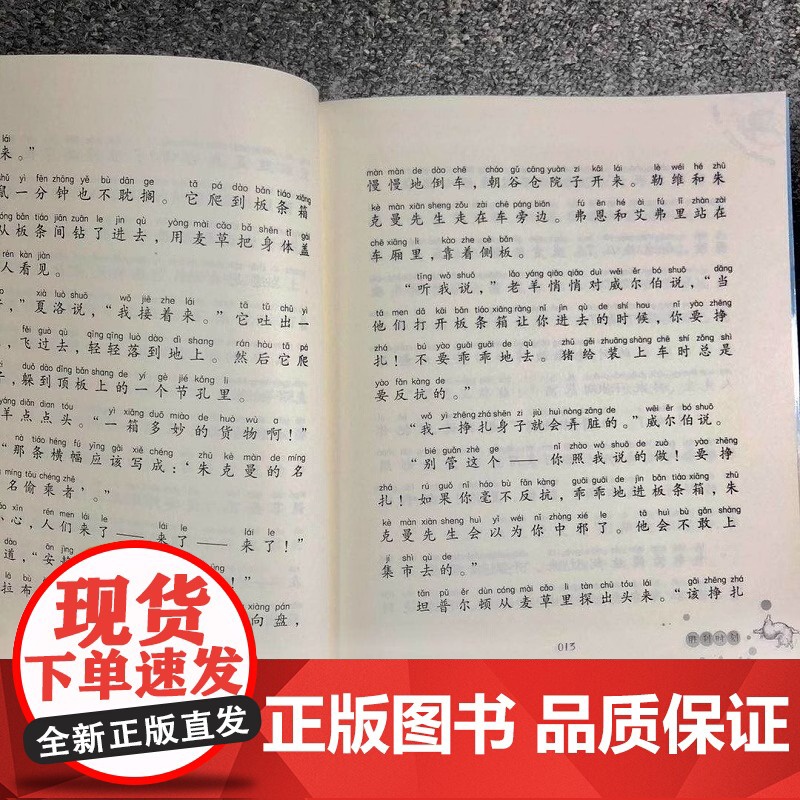 lái
来。”
shǔ yì fēn zhōng yě bù dān ge tā pá dào bǎn tiáo xiāng
鼠一分钟也不耽搁。它爬到板条箱
cóng bǎn tiáo jiān zuān le jìn qù yòng mài cǎo bǎ shēn tǐ gài
从板条间钻了进去，用麦草把身体盖
rén kàn jiàn
人看见。
xià luò shuō wǒ jiē zhe lái tā tǔ chū yì
，”夏洛说，“我接着来。”它吐出一
fēi guò qù qīng qīng luò dào dì shang rán hòu tā pá
，飞过去，轻轻落到地上。然后它爬
duǒ dào dǐng bǎn shang de yí gè jié kǒng li
子，躲到顶板上的一个节孔里。
yáng diǎn dian tóu yì xiāng duō miào de huò wù a
羊点点头。“一箱多妙的货物啊！”
nà tiáo héng fú yīng gāi xiě chéng zhū kè màn de míng
“那条横幅应该写成：‘朱克曼的名
míng tōu chéng zhě
名偷乘者’。”
xīn rén men lái le lái le lái le
心，人们来了——来了——来了！”
dào ān jìng
道，“安
lā bù
拉布
xiàng pán
向盘，
màn màn de dào chē cháo gǔ cāng yuàn zi kāi lái lè wéi hé zhū
慢慢地倒车，朝谷仓院子开来。勒维和朱
kè màn xiān sheng zǒu zài chē páng biān fú ēn hé ài fú lǐ zhàn zài
克曼先生走在车旁边。弗恩和艾弗里站在
chē xiāng lǐ kào zhe cè bǎn
车厢里，靠着侧板。
tīng wǒ shuō lǎo yáng qiāo qiāo duì wēi ěr bó shuō dāng
“听我说，”老羊悄悄对威尔伯说，“当
tā men dǎ kāi bǎn tiáo xiāng ràng nǐ jìn qù de shí hou nǐ yào zhēng
他们打开板条箱让你进去的时候，你要挣
zhá bú yào guāi guāi de qù zhū gěi zhuāng shàng chē shí zǒng shì
扎！不要乖乖地去。猪给装上车时总是
yào fǎn kàng de
要反抗的。”
wǒ yì zhēng zhá shēn zi jiù huì nòng zāng de wēi ěr bó shuō
“我一挣扎身子就会弄脏的。”威尔伯说。
bié guǎn zhè ge nǐ zhào wǒ shuō de zuò yào zhēng
“别管这个——你照我说的做！要挣
zhá rú guǒ nǐ háo bù fǎn kàng guāi guāi de jìn bǎn tiáo xiāng zhū
扎！如果你毫不反抗，乖乖地进板条箱，朱
kè màn xiān sheng huì yǐ wéi nǐ zhòng xié le tā huì bù gǎn shàng
克曼先生会以为你中邪了。他会不敢上
jí shì qù de
集市去的。”
tǎn pǔ ěr dùn cóng mài cǎo lǐ tàn chū tóu lái gāi zhēng zhá
坦普尔顿从麦草里探出头来。“该挣扎
013
胜利时刻
现货
全新正版直发
正版图书 品质保证